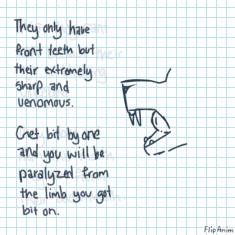 They only have
front teeth but
their extremely
sharp and
venomous.
Get bit by one
and you will be
paralyzed from
the limb you got
bit on.
FlipAnim